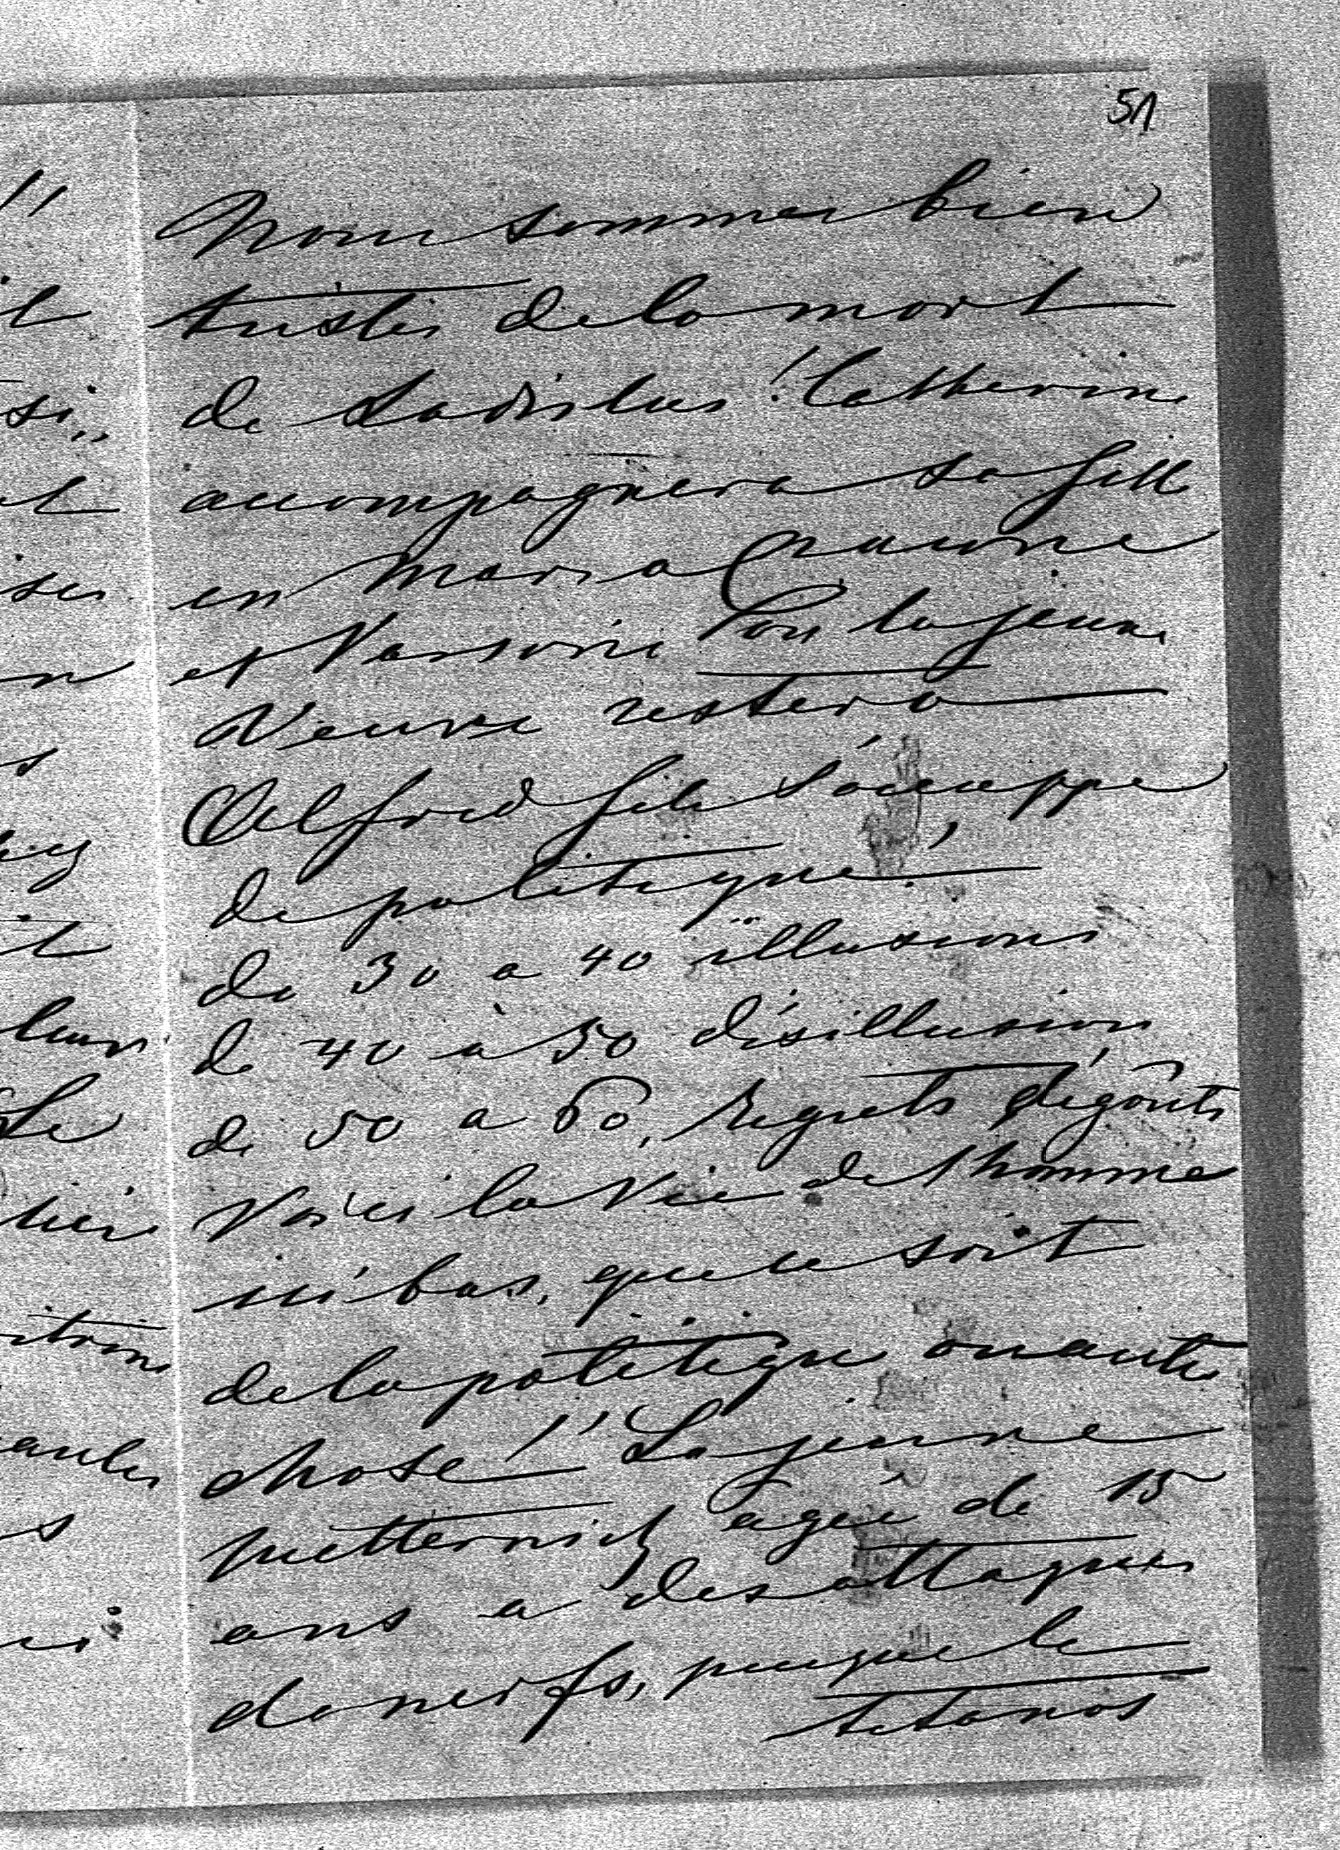 51
Nous sommes bien
tristes de la mort
de Ladislas! Catherine
accompagnera sa fille
en Maria
et Varsovie la jeune
Veuve restera
Alfred fils s'occuppe
de politique!
de 30 a 40 illusions
de 40 à 50 désillusion
de 50 a 60, regrets dégôuts
Voici la Vie de l'homme
ici bas, que ce soit
de la politique ou autre
chose! La jeune
Metternich agée de 15
ans a des attaques
de nerfs, presque le
tetanos